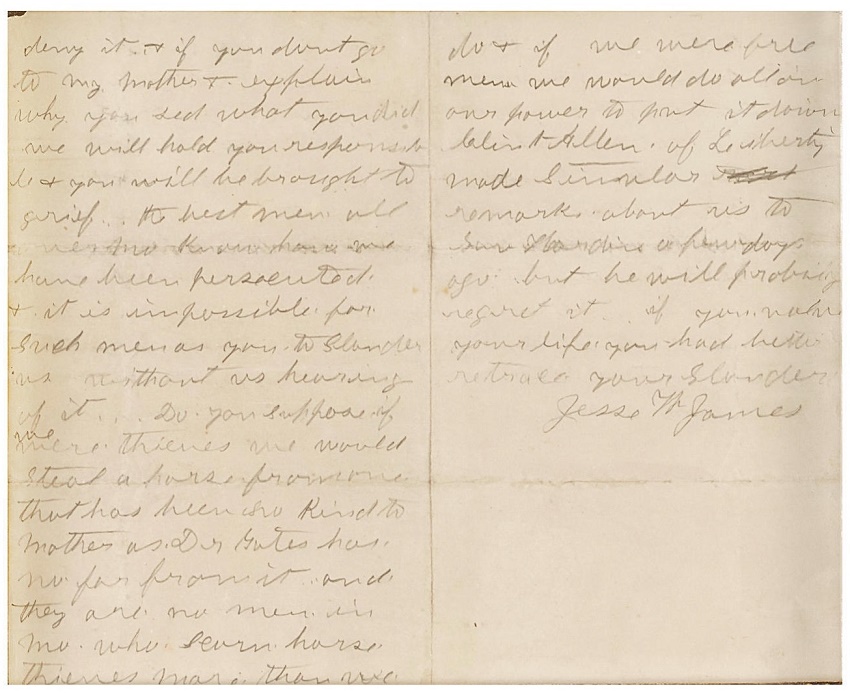 deny it. & if you dont go
to my mother & explain
why you sed what you did
we will hold you responsib
le & you will be brought to
grief. the best men all
over mo Know how we
have been persecuted.
& it is impossible for
Such men as you to Slander
us without us hearing
of it. Do you suppose if
we
were thieves we would
Steal a horse from one
that has been so Kind to
Mother as Dr Yates has.
no far from it. and
they are no men in
mo. who Scorn horse
thieves more than we
do & if we were free
men we would do all in
our power to put it down
Clint Allen. of Liberty
made Simular
remarks about us to
a few days
ago. but he will probaly
regret it. if you value
your life you had better
retrace your Slander
Jesse W James